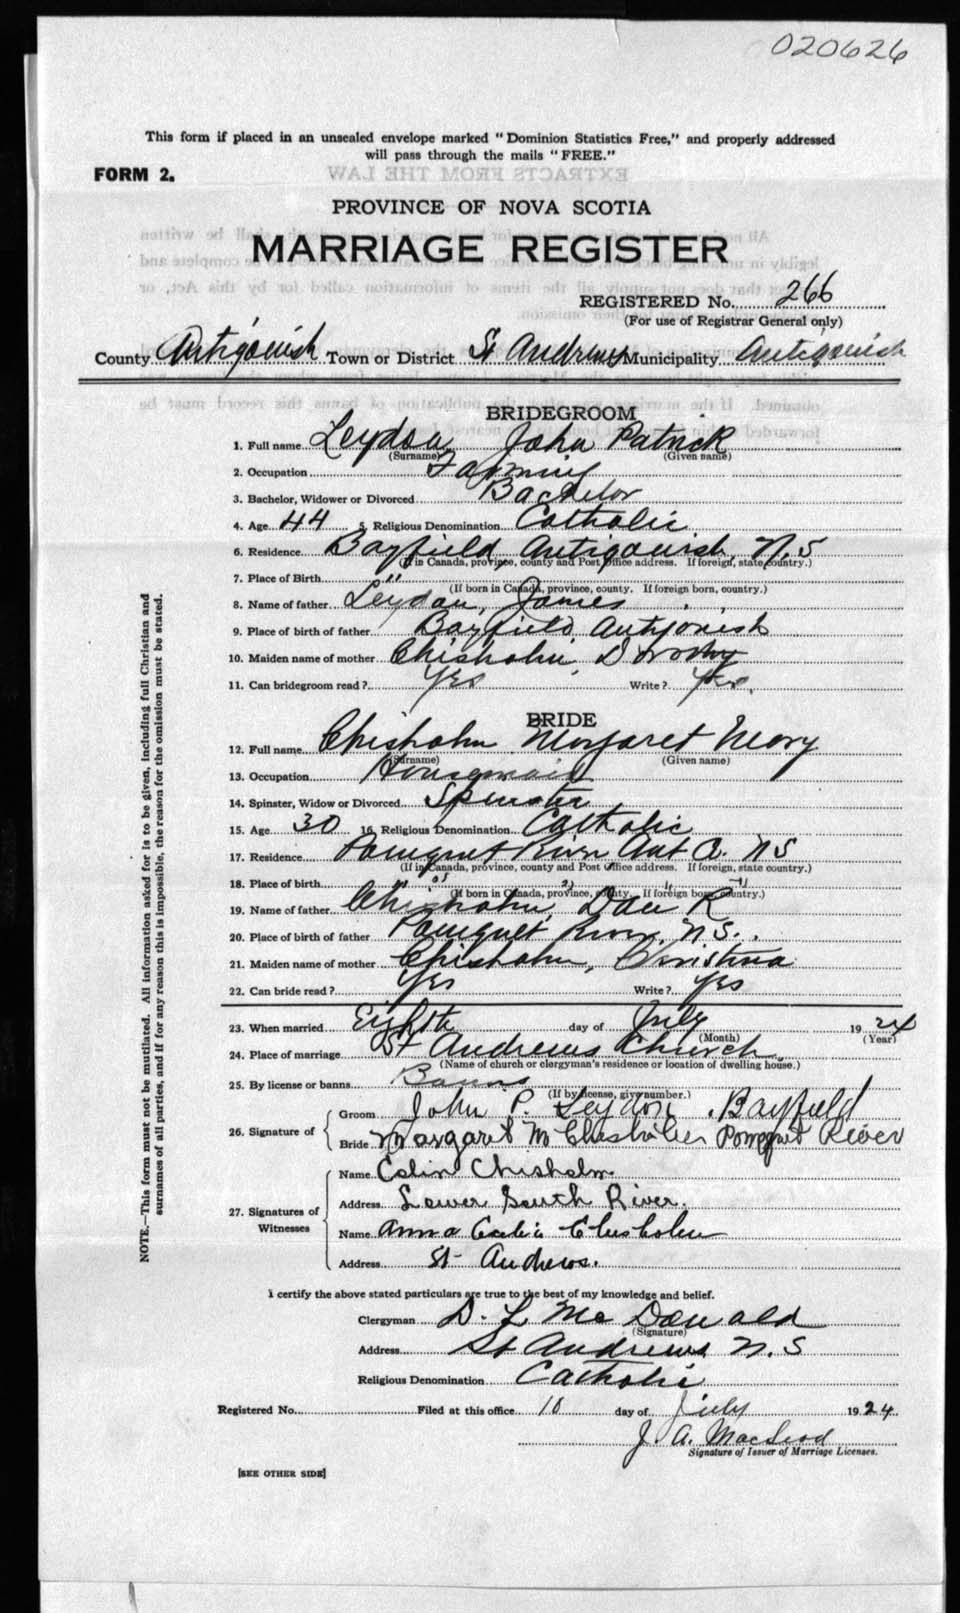 020626
This form if placed in an unsealed envelope marked "Dominion Statistics Free," and properly addressed
will pass through the mails "FREE."
FORM 2.
EXTRACTS FROM THE LAW
PROVINCE OF NOVA SCOTIA
MARRIAGE REGISTER
REGISTERED No. 266
(For use of Registrar General only)
County Antigonish Town or District St Andrews Municipality Antigonish
BRIDEGROOM
1. Full name Leydon John Patrick
(Surname) (Given name)
2. Occupation Farming
3. Bachelor, Widower or Divorced Bachelor
4. Age 44 5. Religious Denomination Catholic
6. Residence Bayfield, Antigonish, N.S
(If in Canada, province, county and Post Office address. If foreign, state country.)
7. Place of Birth " "
(If born in Canada, province, county. If foreign born, country.)
8. Name of father Leydon, James
9. Place of birth of father Bayfield Antigonish
10. Maiden name of mother Chisholm, Dorothy
11. Can bridegroom read? Yes Write? Yes.
BRIDE
12. Full name Chisholm Margaret Mary
(Surname) (Given name)
13. Occupation Housemaid
14. Spinster, Widow or Divorced Spinster
15. Age 30 16. Religious Denomination Catholic
17. Residence Pomquet River Ant Co. NS
(If in Canada, province, county and Post Office address. If foreign, state country.)
18. Place of birth " "
(If born in Canada, province, county. If foreign born, country.)
19. Name of father Chisholm, Dan R
20. Place of birth of father Pomquet River, N.S.
21. Maiden name of mother Chisholm, Christina
22. Can bride read? Yes Write? Yes
23. When married Eighth day of July 1924
(Month) (Year)
24. Place of marriage St Andrews Church
(Name of church or clergyman's residence or location of dwelling house.)
25. By license or banns Banns
(If by license, give number.)
26. Signature of
Groom John P. Leydon, Bayfield
Bride Margaret M Chisholm Pomquet River
27. Signatures of Witnesses
Name Colin Chisholm.
Address Lower South River.
Name Anna Chisholm
Address St Andrews.
I certify the above stated particulars are true to the best of my knowledge and belief.
Clergyman D. L McDonald
(Signature)
Address St Andrews N.S
Religious Denomination Catholic
Registered No. Filed at this office 10 day of July 1924.
J. A. MacLeod
Signature of Issuer of Marriage Licenses.
[SEE OTHER SIDE]
NOTE.—This form must not be mutilated. All information asked for is to be given, including full Christian and
surnames of all parties, and if for any reason this is impossible, the reason for the omission must be stated.